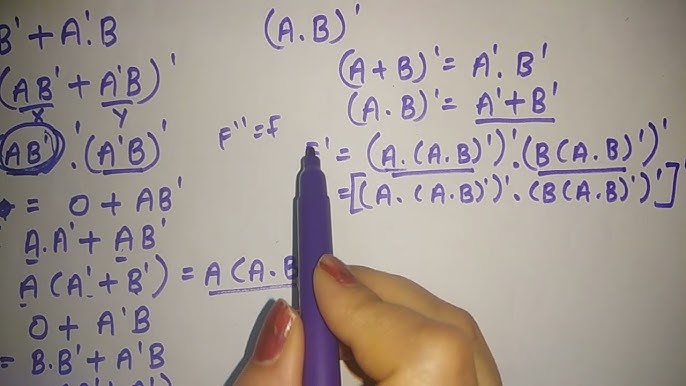 B' + A'.B
(AB' + A'B)'
X Y
(AB')'.(A'B)'
= 0 + AB'
A.A' + AB'
A(A' + B') = A(A.B
0 + A'B
= B.B' + A'B
(A.B)'
(A+B)' = A'.B'
(A.B)' = A'+B'
F'' = F
F' = (A.(A.B)')'.(B(A.B)')'
=[(A.(A.B)')'.(B(A.B)')']'